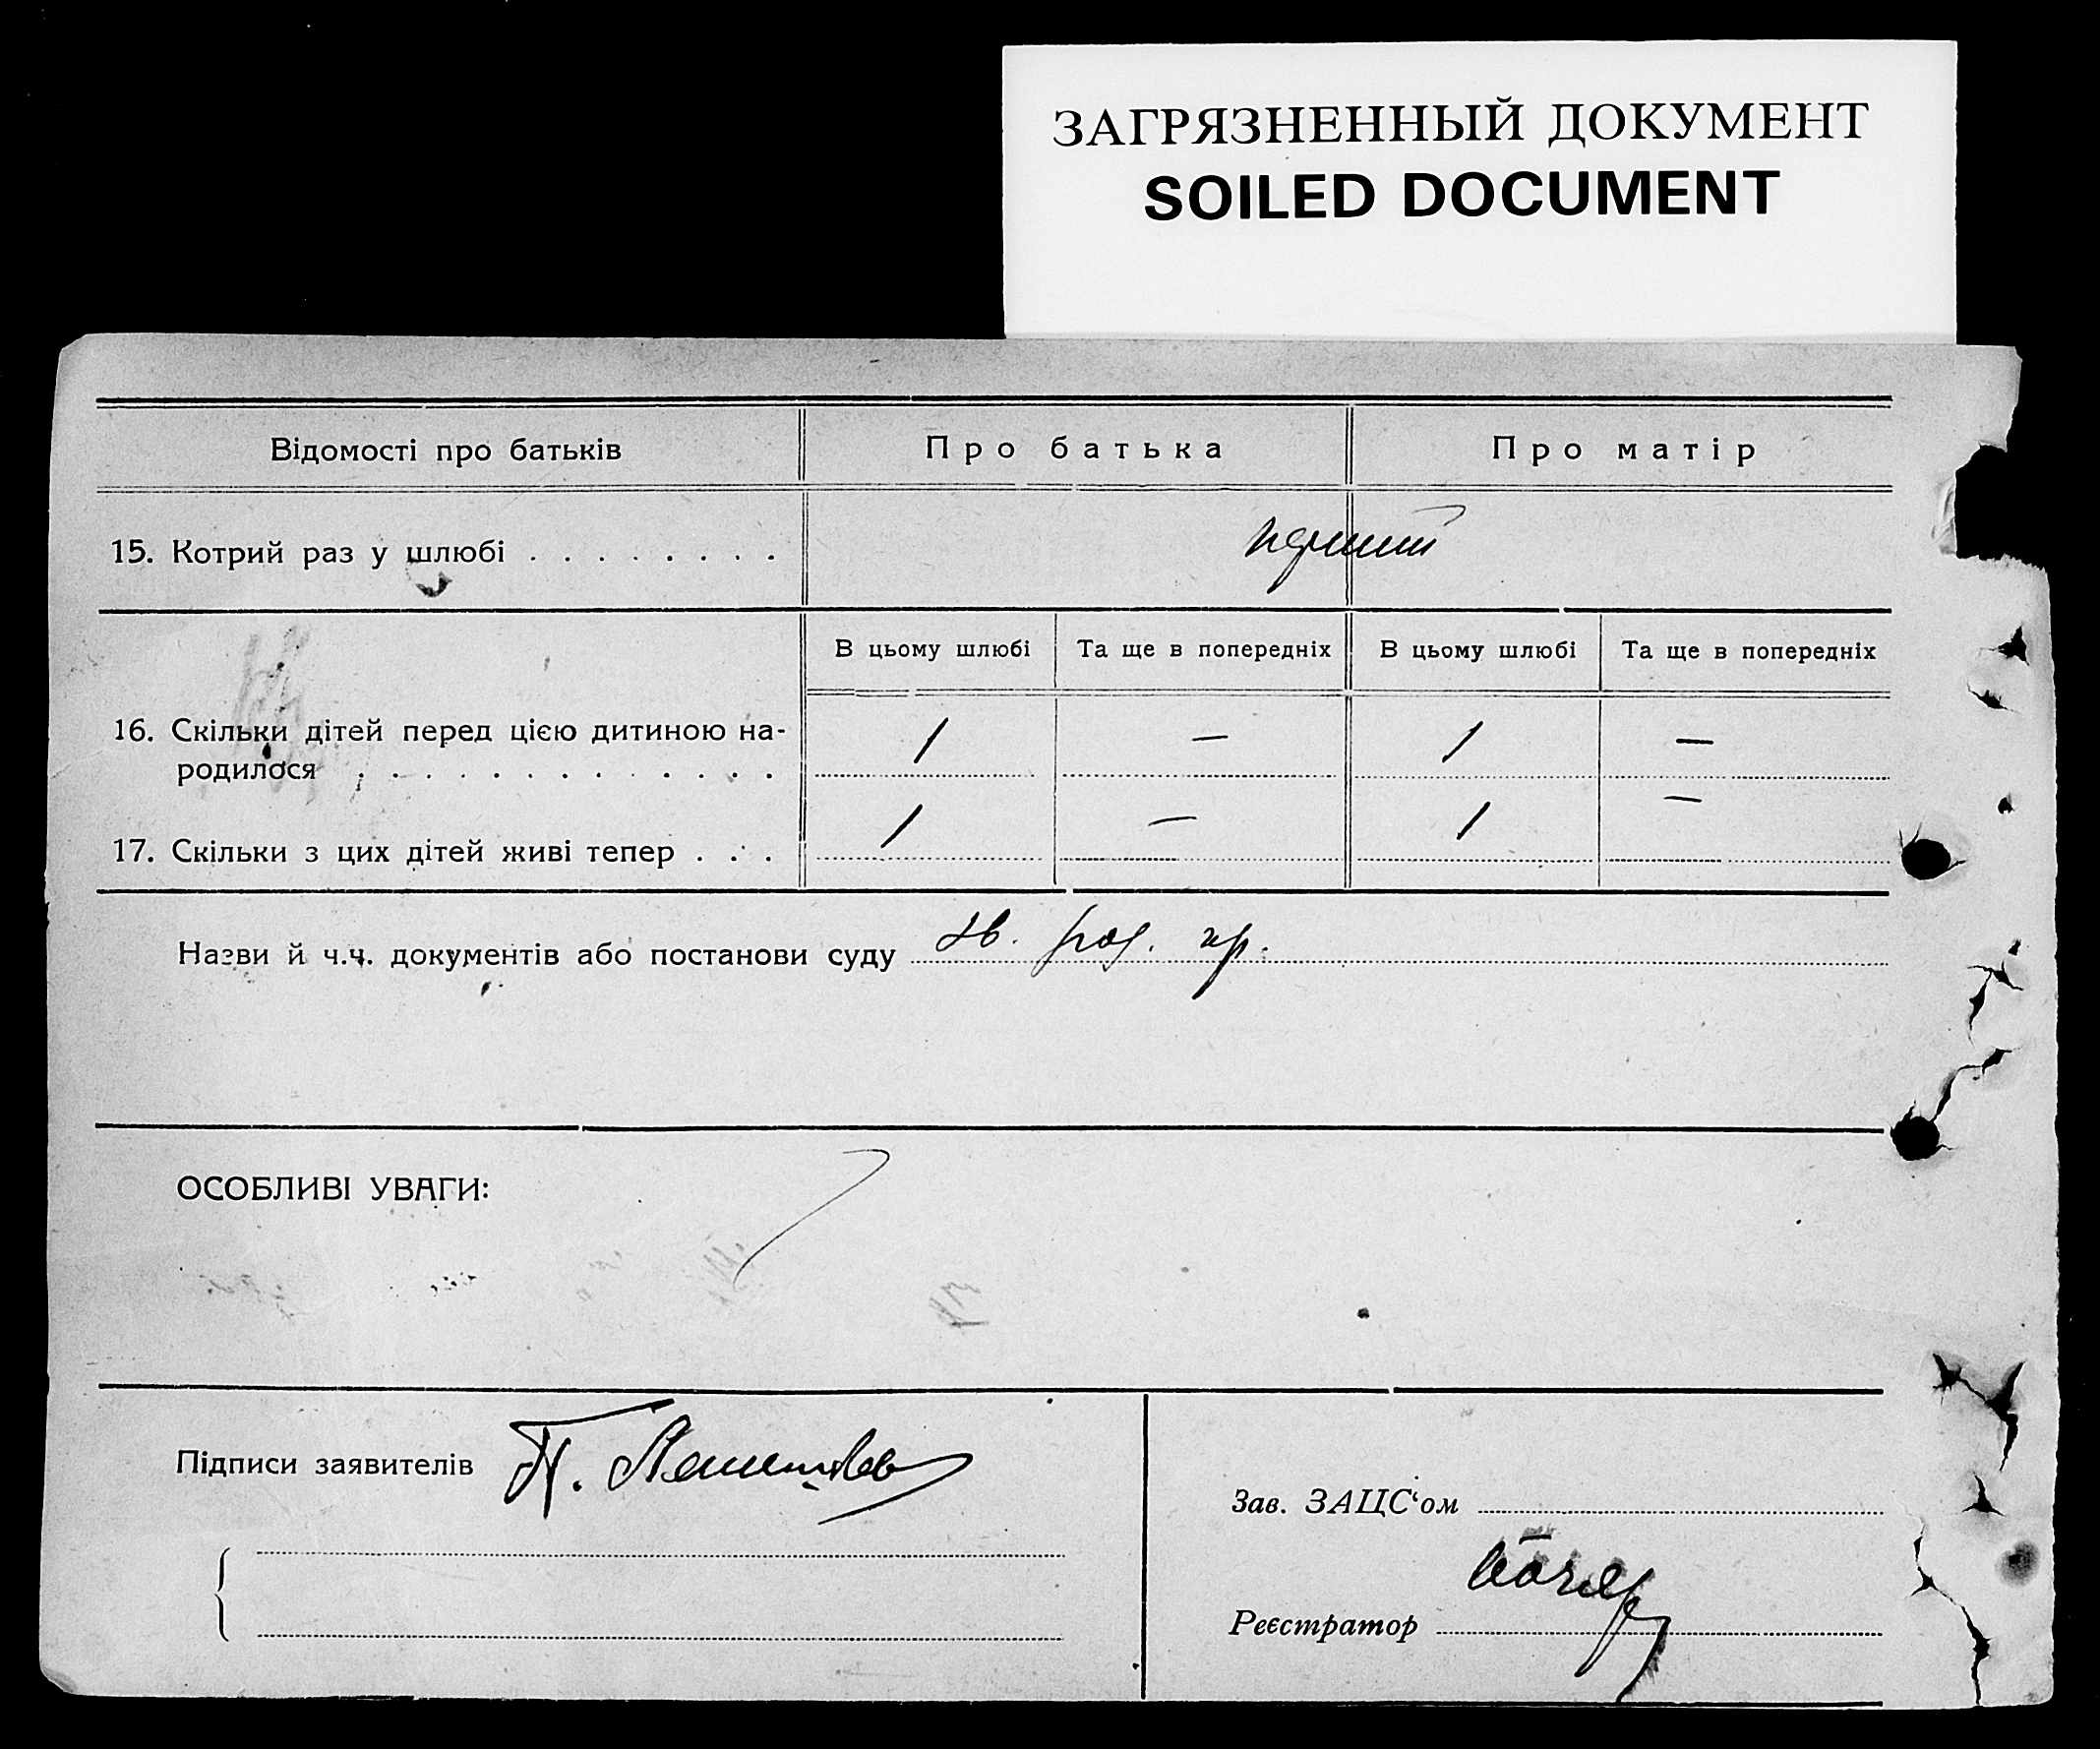 ЗАГРЯЗНЕННЫЙ ДОКУМЕНТ
SOILED DOCUMENT
Відомості про батьків
Про батька
Про матір
15. Котрий раз у шлюбі . . . . . . . .
перший
В цьому шлюбі
Та ще в попередніх
В цьому шлюбі
Та ще в попередніх
16. Скільки дітей перед цією дитиною на-
родилося . . . . . . . . . . . . .
1 — 1 —
17. Скільки з цих дітей живі тепер . . .
1 — 1 —
Назви й ч.ч. документів або постанови суду
ОСОБЛИВІ УВАГИ:
Підписи заявителів П.
Зав. ЗАЦС‘ом
Реєстратор